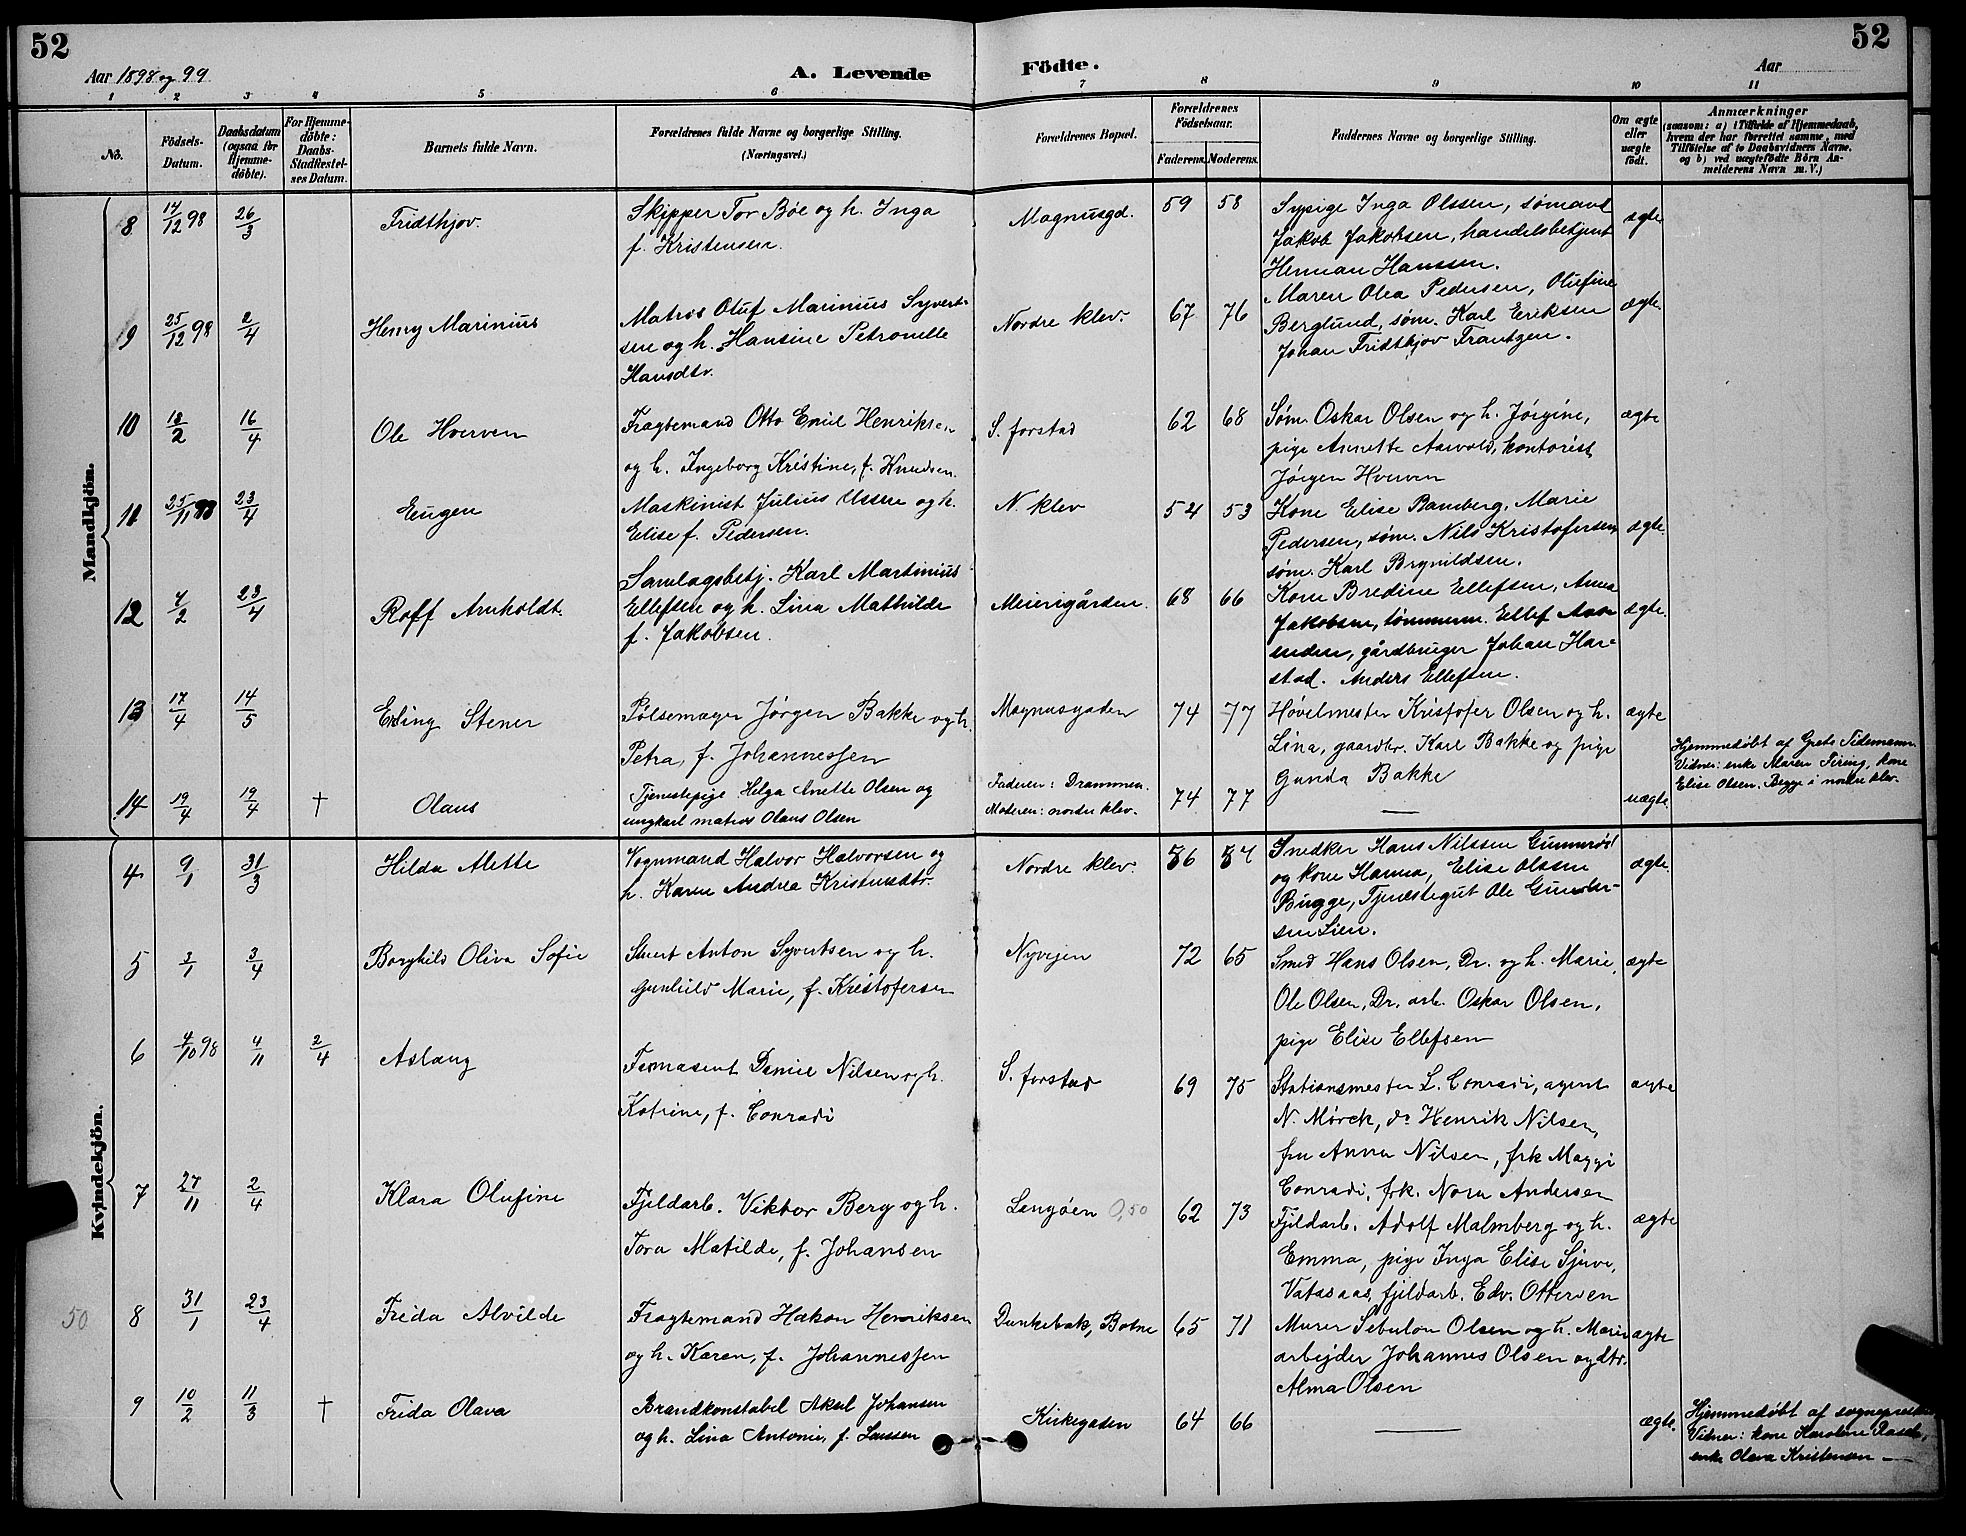 52
52
Aar 1898 og 99.
A. Levende Födte.
Aar
1 2 3 4 5 6 7 8 9 10 11
No.
Födsels-Datum.
Daabsdatum (ogsaa for Hjemme-döbte).
For Hjemme-döbte: Daabs-Stadfæstel-ses Datum.
Barnets fulde Navn.
Forældrenes fulde Navne og borgerlige Stilling. (Næringsvei.)
Forældrenes Bopæl.
Forældrenes Födselsaar.
Faderens. Moderens.
Faddernes Navne og borgerlige Stilling.
Om ægte eller uægte födt.
Anmærkninger
(saasom: a) i Tilfælde af Hjemmedaab, hvem der har forrettet samme, med Tilföielse af to Daabsvidners Navne, og b) ved uægtefödte Börn An-melderens Navn m. V.)
Mandkjön.
8 14/12 98 26/3 Fridthjov.
Skipper Tor Bøe og h. Inga
f. Kristensen.
Magnusgd. 59 58
Sypige Inga Olssen, sømand
Jakob Jakobsen, handelsbetjent
Herman Hanssen.
ægte
9 25/12 98 2/4 Henry Marinius
Matros Oluf Marinius Syvert-
sen og h. Hansine Petronelle
Hansdtr.
Nordre klev. 67 76
Maren Olea Pedersen, Olufine
Berglund, søm. Karl Eriksen
Johan Fridthjov Frantzen.
ægte.
10 18/2 16/4 Ole Hverven
Fragtemand Otto Emil Henriksen
og h. Ingeborg Kristine, f. Knudsen.
S. forstad 62 68
Søm. Oskar Olsen og h. Jørgine,
pige Annette Aarvold, kontorist
Jørgen Hverven
ægte
11 25/11 98 23/4 Eugen
Maskinist Julius Ussen og h.
Elise f. Pedersen.
N. klev 54 53
Kone Elise Bamberg, Marie
Pedersen, søm. Nils Kristofersen,
søm. Karl Brynildsen.
ægte.
12 4/2 23/4 Roff Arnholdt.
Samlagsbetj. Karl Martinius
Ellefsen og h. Lina Mathilde
f. Jakobsen.
Meierigården. 68 66
Kone Bredine Ellefsen, Anna
Jakobsen, tømmerm. Ellef
gårdbruger Johan Har-
stad. Anders Ellefsen.
ægte.
13 17/4 14/5 Erling Stener
Pølsemager Jørgen Bakke og h.
Petra, f. Johannessen
Magnusgaden 74 77
Høvelmester Kristofer Olsen og h.
Lina, gaardbr. Karl Bakke og pige
Gunda Bakke
ægte
14 19/4 19/4 † Olaus
Tjenestepige Helga Anette Olsen og
ungkarl matros Olaus Olsen
Faderen: Drammen.
Moderen: nordre klev.
74 77 —
uægte.
Hjemmedøbt af Grete Tidemann.
Vidner: enke Maren Firing, kone
Elise Olsen. Begge i nordre klev.
Kvindekjön.
4 9/1 31/3 Hilda Alette
Vognmand Halvor Halvorsen og
h. Karen Andrea Kristensdtr.
Nordre klev. 56 57
Snedker Hans Nilssen
og kone Hanna, Elise Olssen
Bugge, Tjenestegut Ole Gunder-
sen Lien.
ægte.
5 3/1 3/4 Borghild Oliva Sofie
Stuert Anton Syvertsen og h.
Gunhild Marie, f. Kristofersen
Nyvejen 72 65
Smed Hans Olsen, Dr. og h. Marie,
Ole Olsen, Dr. arb. Oskar Olsen,
pige Elise Ellefsen
ægte
6 4/10 98 4/11 2/4 Aslaug
Daniel Nilsen og h.
Katrine, f. Conradi
S. forstad 69 75
Stationsmester L. Conradi, agent
N. Mørck, do Henrik Nilsen,
fru Anna Nilsen, frk Maggi
Conradi, frk. Nora Andersen
ægte
7 27/11 2/4 Klara Olufine
Fjeldarb. Viktor Berg og h.
Tora Matilde, f. Johansen
Langøen 0,50 62 73
Fjeldarb. Adolf Malmberg og h.
Emma, pige Inga Elise Sjuve,
Vatasaas, fjeldarb. Edv. Ottersen
ægte
50
8 31/1 23/4 Frida Alvilde
Fragtemand Hakon Henriksen
og h. Karen, f. Johannessen
Dunkebæk, Botne 65 71
Murer Sebulon Olsen og h. Marie
arbejder Johannes Olsen og dtr.
Alma Olsen
ægte
9 10/2 11/3 † Frida Olava
Brandkonstabel Aksel Johansen
og h. Lina Antonie, f. Larssen
Kirkegaden 64 66 —
ægte.
Hjemmedøbt af sognepresten
Vidner: kone Karoline
enke Olava Kristensen —